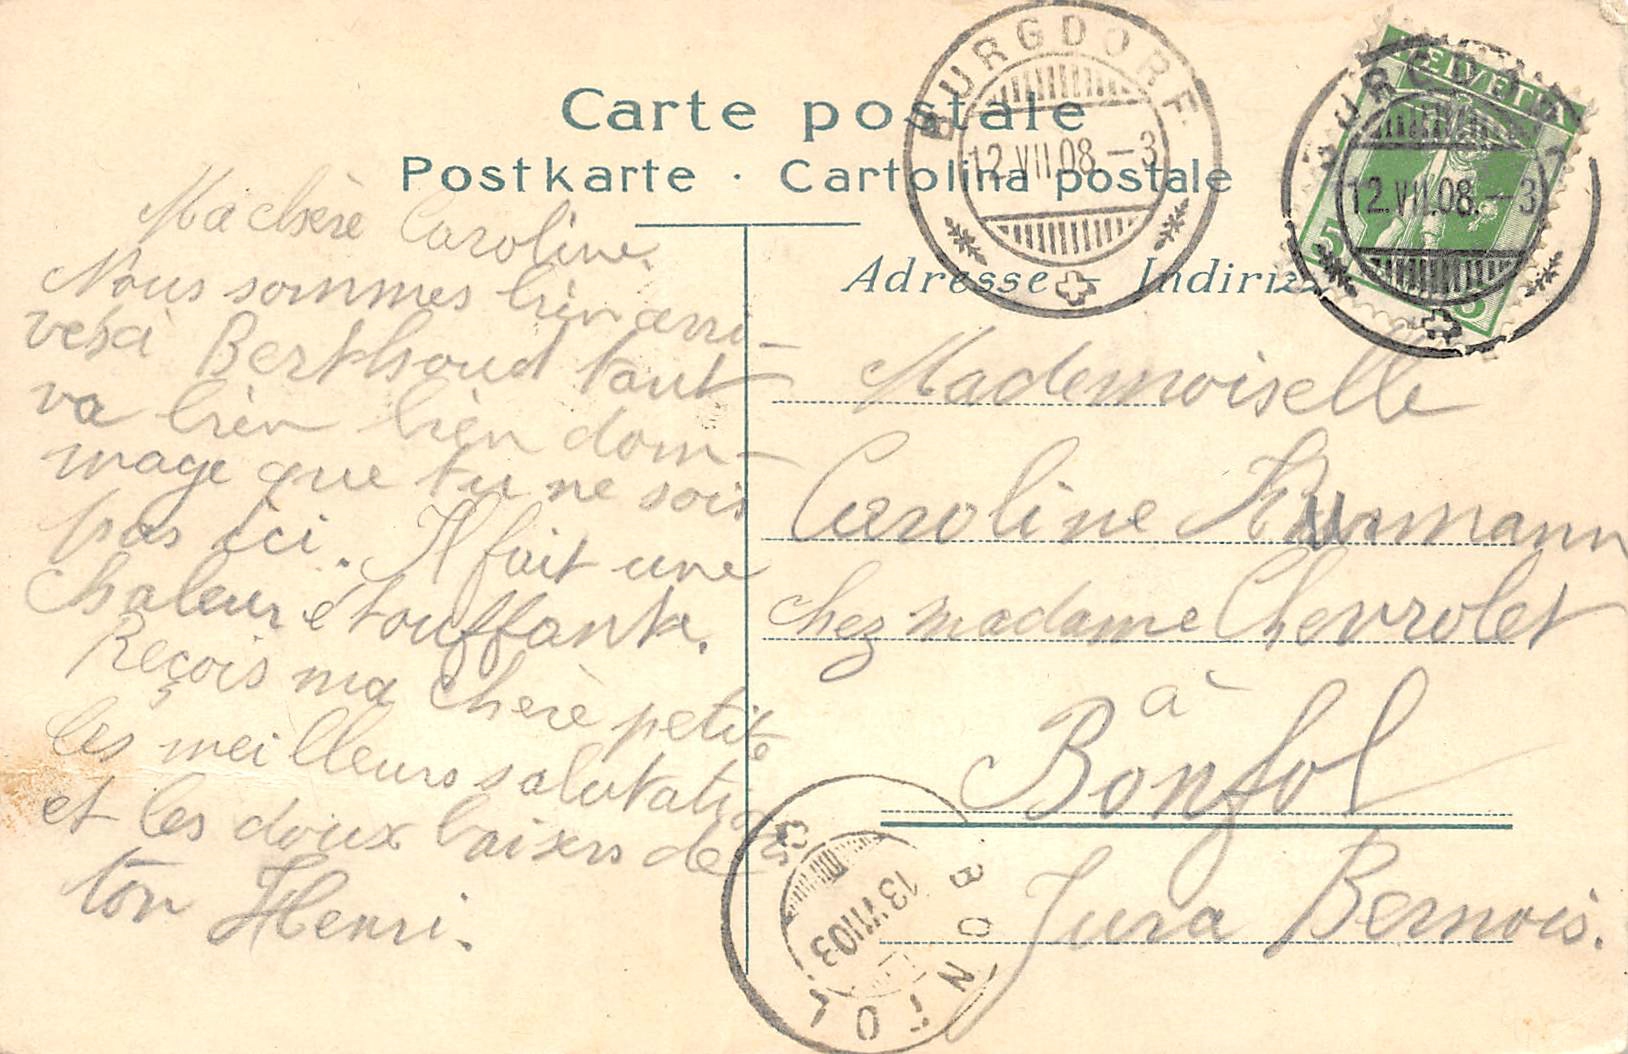 Carte postale
Postkarte · Cartolina postale
Adresse – Indirizzo
BURGDORF
12.VII.08.–3
HELVETIA
5
5
BURGDORF
12.VII.08.–3
Ma chère Caroline.
Nous sommes bien arri-
vés à Berthoud tout
va bien bien dom-
mage que tu ne sois
pas ici. Il fait une
chaleur étouffante.
Reçois ma chère petite
les meilleurs salutations
et les doux baisers de
ton Henri.
Mademoiselle
Caroline
chez madame Chevrolet
à
Bonfol
Jura Bernois.
BONFOL
13 VII 03